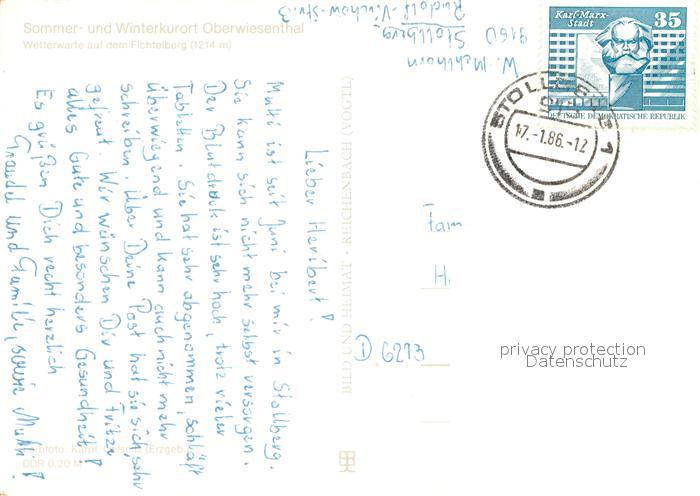 Sommer- und Winterkurort Oberwiesenthal
Wetterwarte auf dem Fichtelberg (1214 m)
W. Mehlhorn
9150 Stollberg
Rudolf-Virchow-Str. 3
Karl-Marx-
Stadt
35
DEUTSCHE DEMOKRATISCHE REPUBLIK
STOLLBERG 1
17.-1.86.-12
Lieber Heribert!
Mutti ist seit Juni bei mir in Stollberg.
Sie kann sich nicht mehr selbst versorgen.
Der Blutdruck ist sehr hoch, trotz vieler
Tabletten. Sie hat sehr abgenommen, schläft
überwiegend und kann auch nicht mehr
schreiben. Über Deine Post hat sie sich sehr
gefreut. Wir wünschen Dir und Fritze
alles Gute und besonders Gesundheit!
Es grüßen Dich recht herzlich
und Familie, sowie Mutti!
BILD UND HEIMAT · REICHENBACH (VOGTL)
Fam
H.
D 6293
privacy protection
Datenschutz
(Erzgeb
DDR 0,20 M